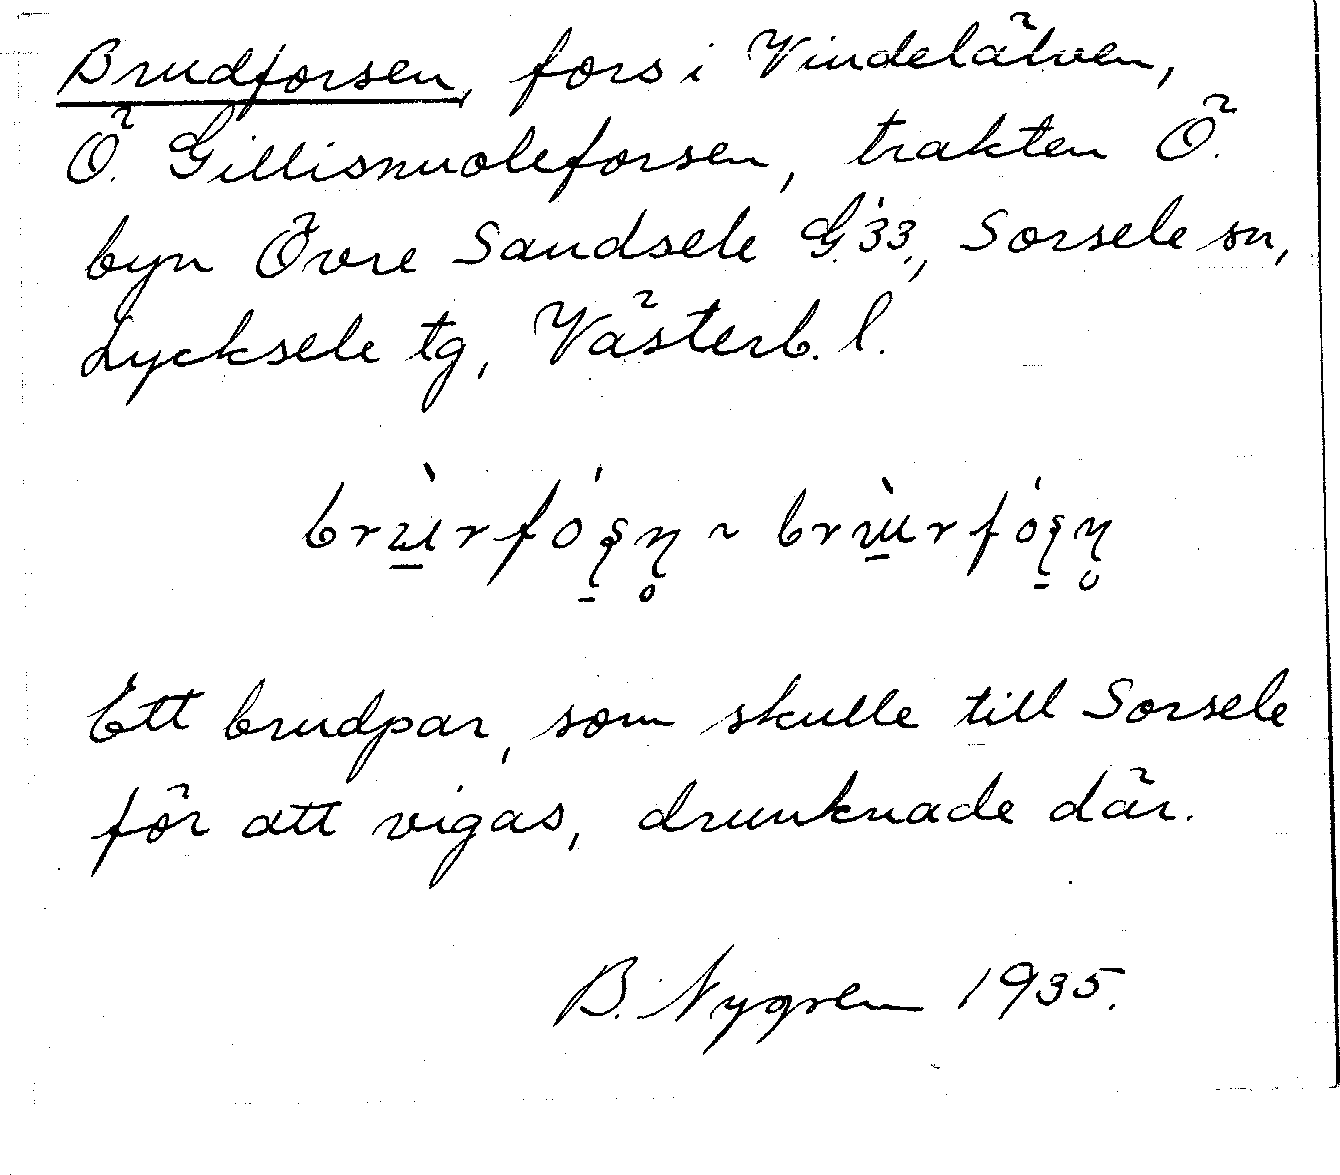 Brudforsen, fors i Vindelälven,
Ö. Gillisnuoleforsen, trakten Ö.
byn Övre Sandsele G.33., Sorsele sn,
Lycksele tg, Västerb. l.
Ett brudpar, som skulle till Sorsele
för att vigas, drunknade där.
B. Nygren 1935.